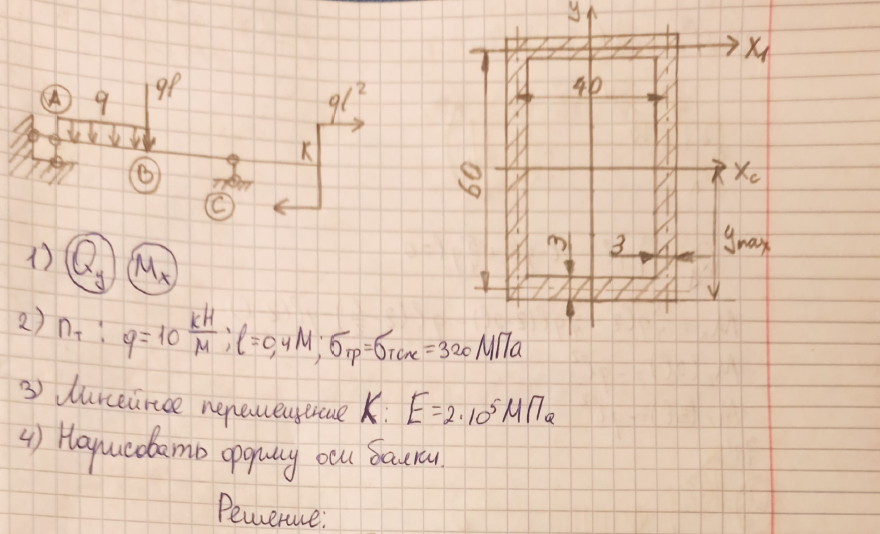 A q ql ql² K B C
y x₁ 40 60 xc 3 3 yмах
1) Qy Mx
2) nт : q=10 кН/м ; l=0,4м; бтр=бтсж=320 МПа
3) Линейное перемещение К: E=2·10⁵ МПа
4) Нарисовать форму оси балки.
Решение: